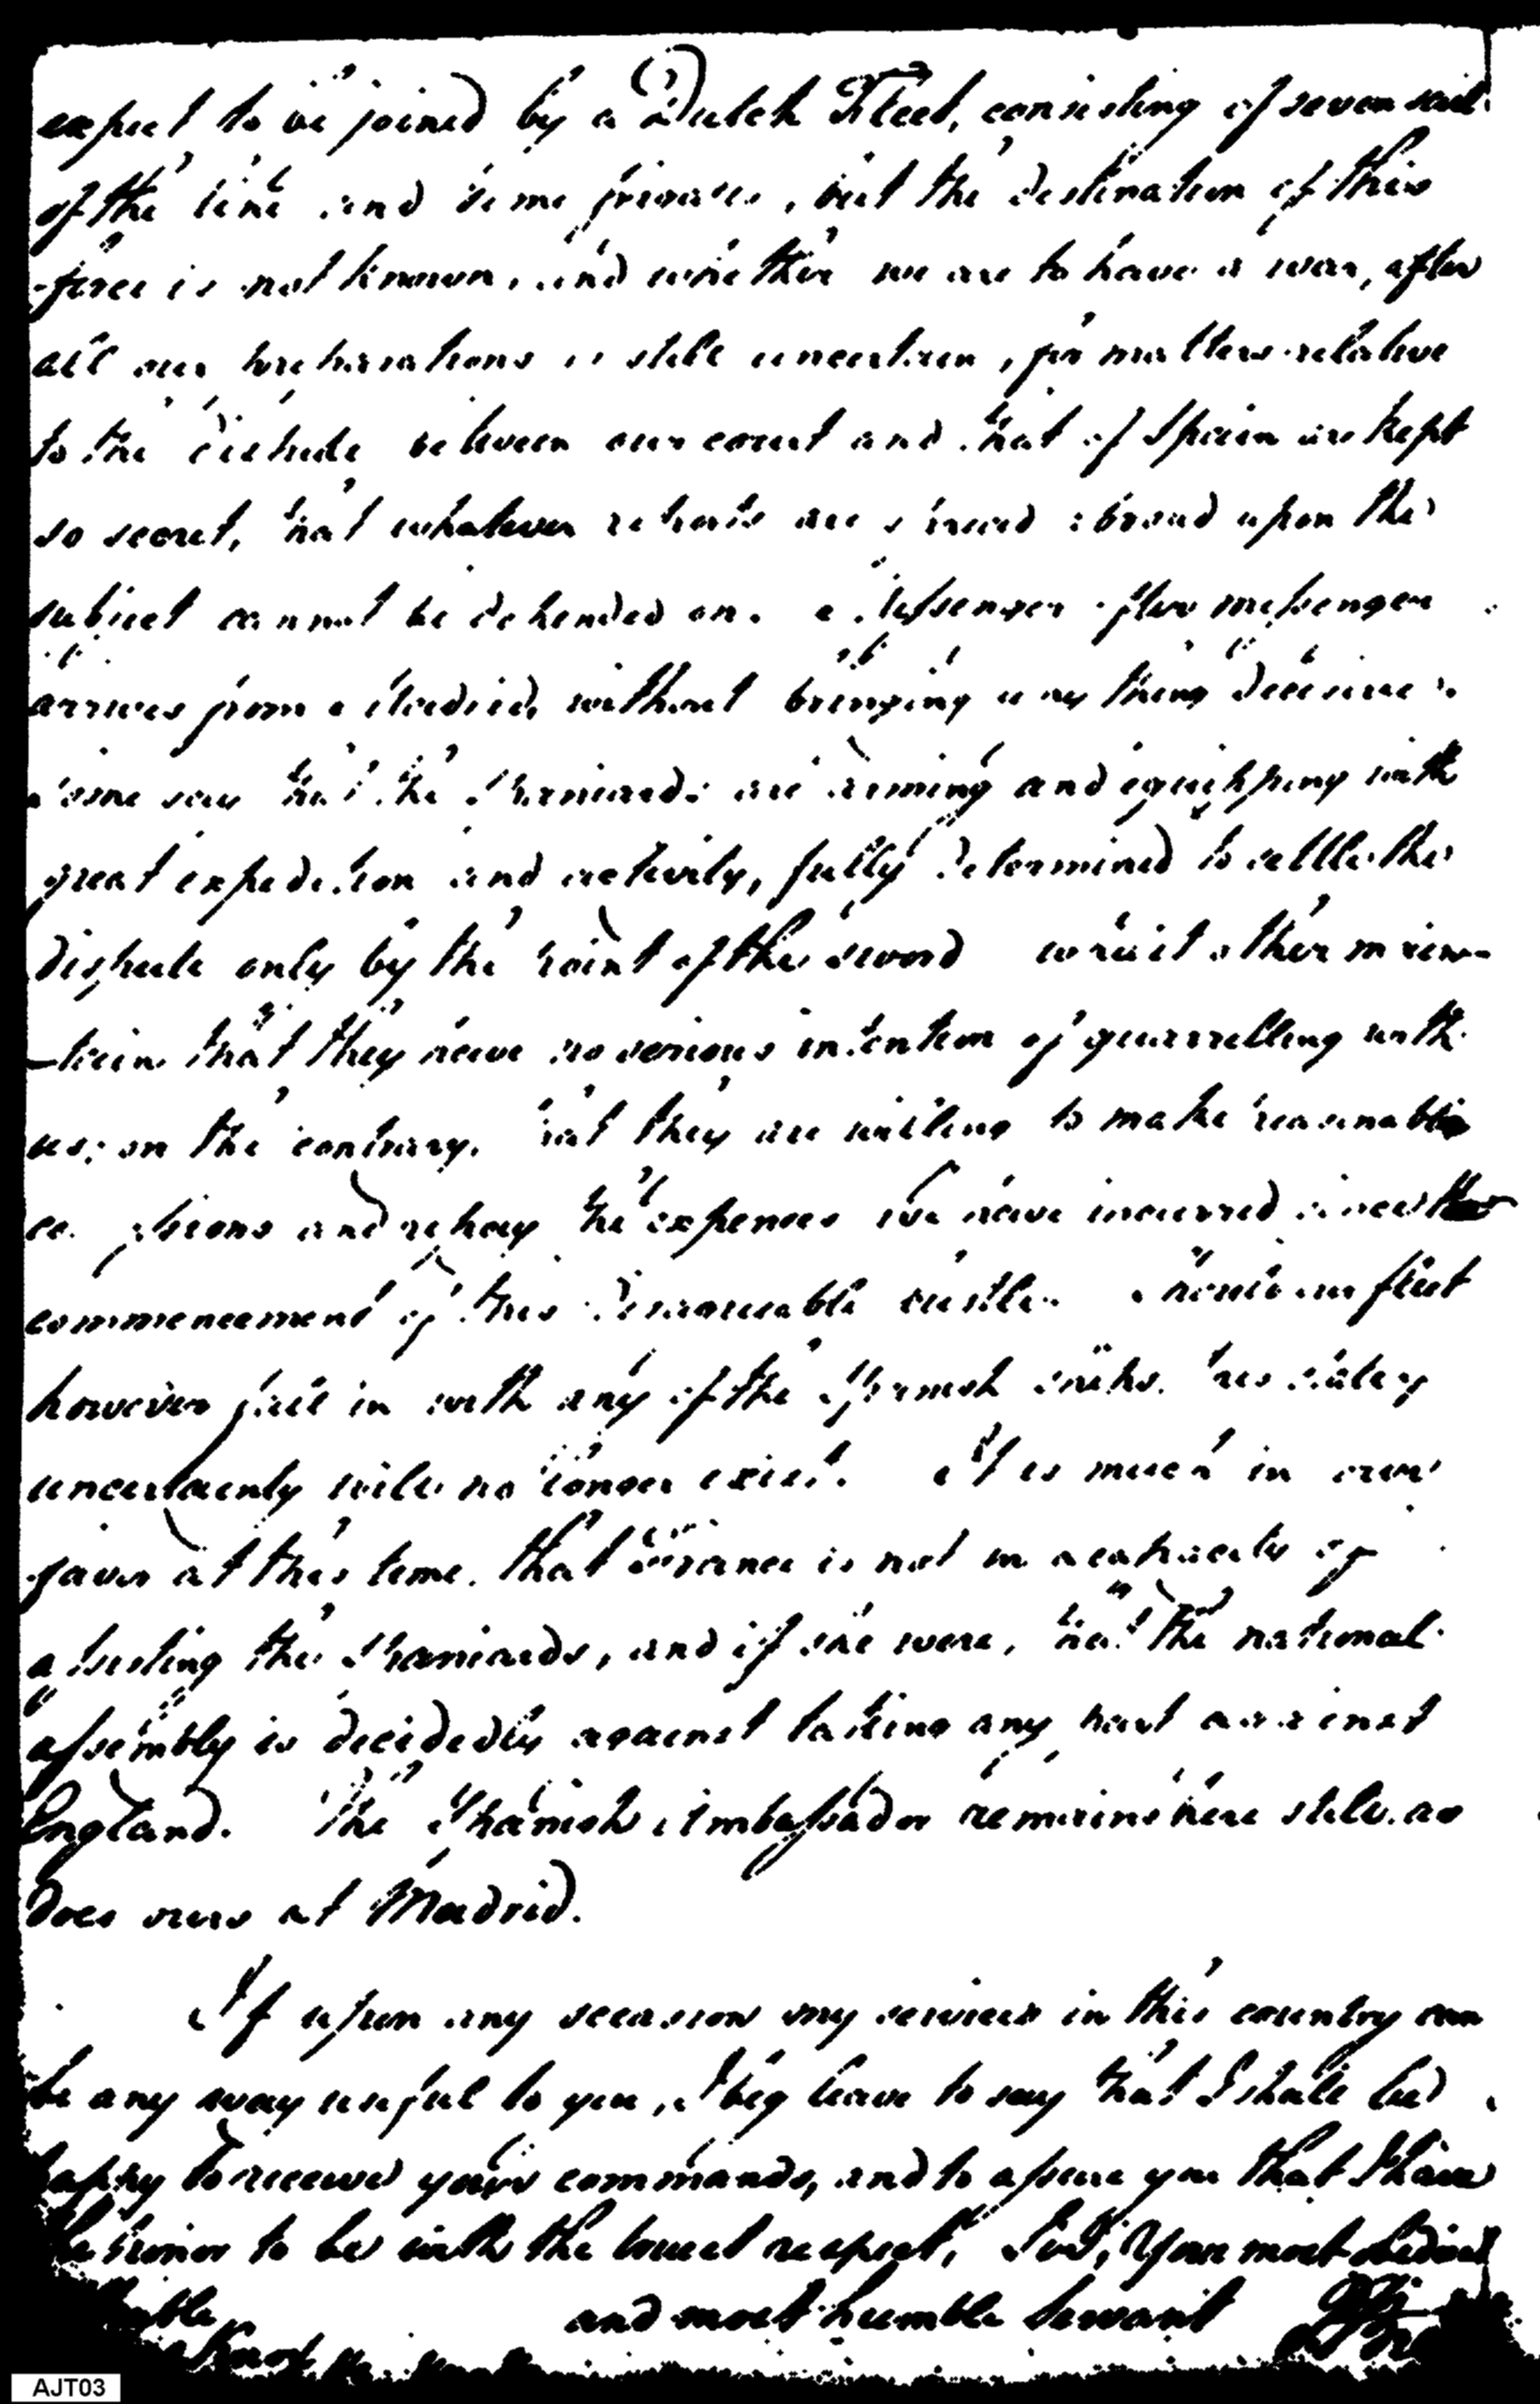 (2)
expect to be joined by a Dutch Fleet, consisting of seven sail
of the line and some frigates, but the destination of this
force is not known, and whether we are to have a war, after
all our preparations is still uncertain, for matters relative
to the dispute between our court and that of Spain are kept
so secret, that whatever reports are spread abroad upon the
subject cannot be depended on. Messenger after messenger
arrives from Madrid, without bringing any thing decisive.
Some say that the Spaniards are arming and equipping with
great expedition and activity, fully determined to settle the
dispute only by the point of the sword whilst others main-
-tain that they have no serious intention of quarrelling with
us; on the contrary, that they are willing to make reasonable
and repay the expenses we have incurred since the
commencement of this bustle. Should our fleet
however fall in with any of the Spanish ships, this state of
uncertainty will no longer exist. It is much in our
favor at this time, that France is not in a capacity of
assisting the Spaniards, and if she were, that the national
assembly is decidedly against taking any part against
England. The Spanish Ambassador remains here still, as
does ours at Madrid.
If upon any occasion my services in this country can
be any way useful to you, I beg leave to say that I shall be
happy to receive your commands, and to assure you that I have
the honor to be with the truest respect, Sir, Your most obedient
and most humble Servant
AJT03